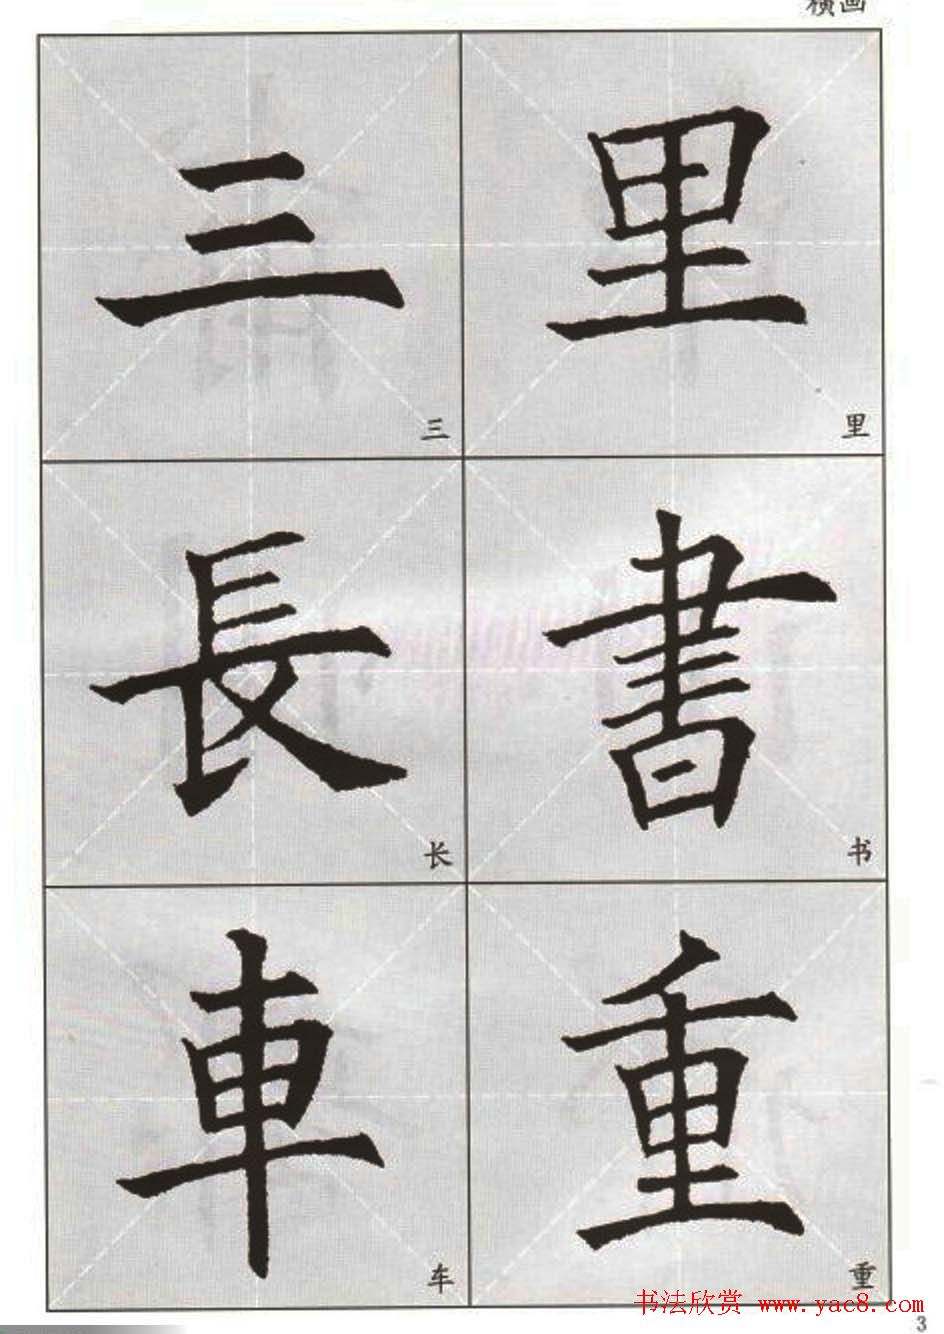 横画
三 里
三 里
長 書
长 书
車 重
车 重
书法欣赏 www.yac8.com
3